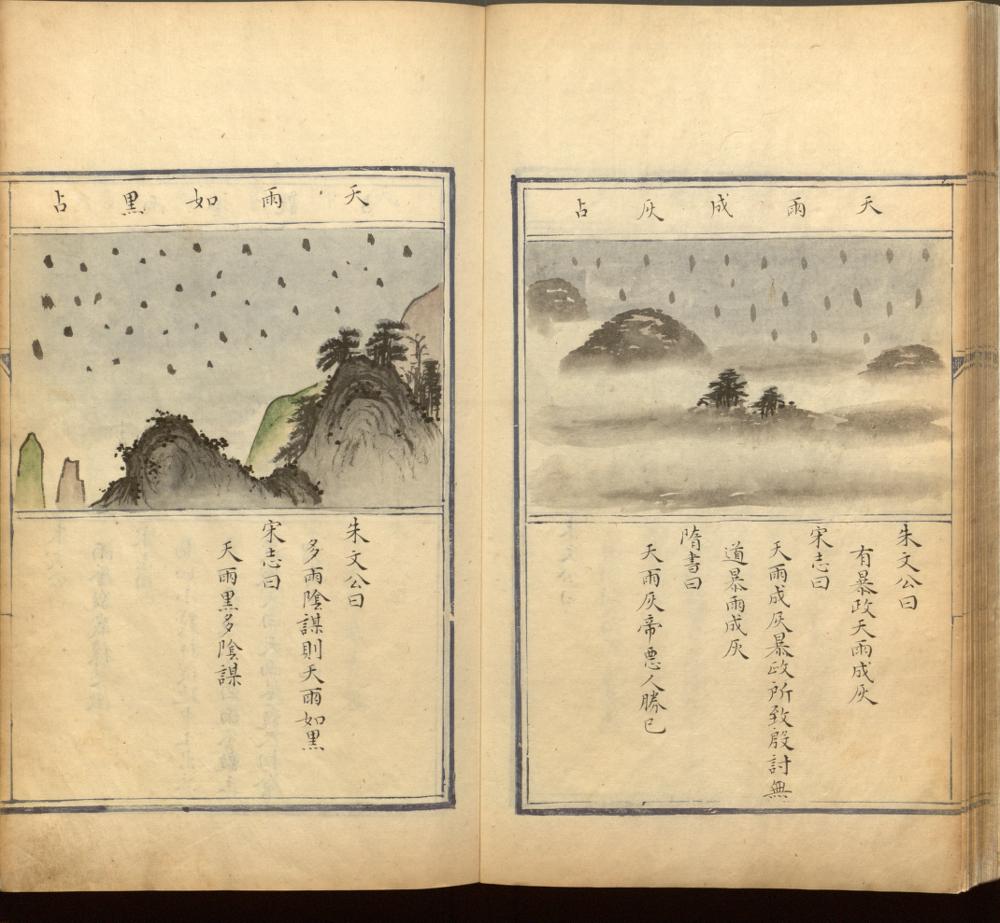 天雨成灰占
朱文公曰
有暴政天雨成灰
宋志曰
天雨成灰暴政所致殷討無
道暴雨成灰
隋書曰
天雨灰帝惡人勝已
天雨如黑占
朱文公曰
多雨陰謀則天雨如黑
宋志曰
天雨黑多陰謀